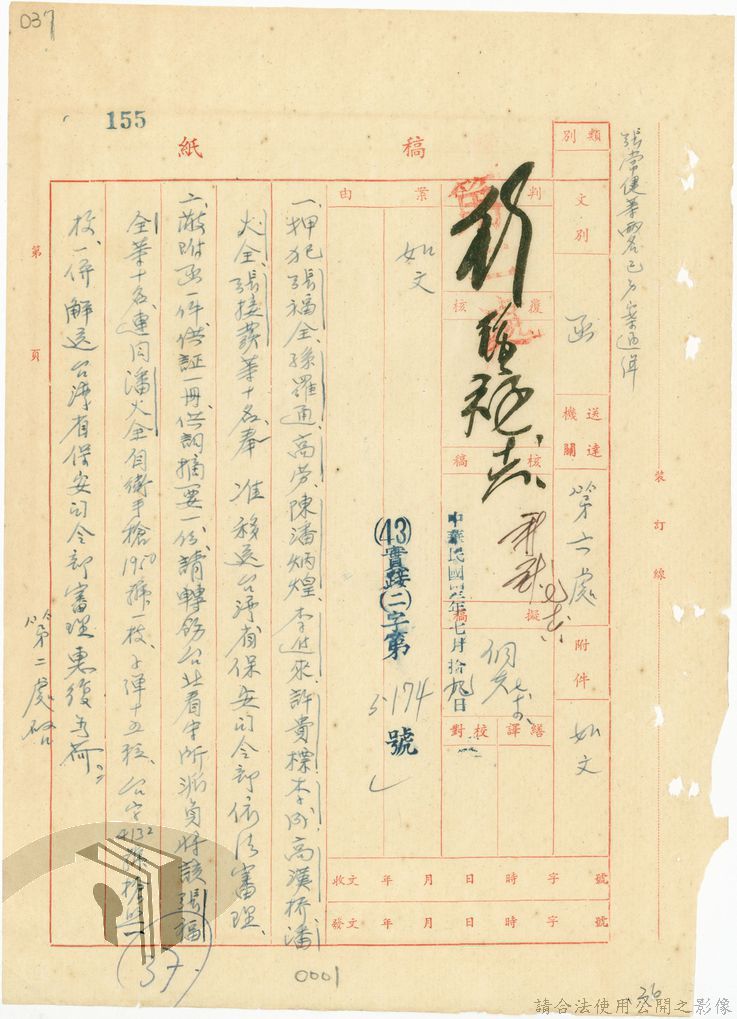 037
155
稿紙
張常健等兩名已另案通緝
裝訂線
類別
文別
函
送達機關
第六處
附件
如文
判行
覆核
核稿
擬稿
繕譯
校對
中華民國四三年七月拾九日
(43)實踐(二)字第5174號
案由
如文
收文 年 月 日 時 字 號
發文 年 月 日 時 字 號
一、押犯張福全、孫羅通、高勞、陳潘炳煌、李進來、許貴標、李成、高漢橋、潘
火全、張接費等十名奉 准移送台灣省保安司令部依法審理、
二、茲附函一件供証一冊、供詞摘要一份、請轉飭台北看守所派員將該張福
全等十名連同潘火全自衛手槍1950號一枝、子彈十五粒、台字4132號槍照一
枚、一併解送台灣省保安司令部審理惠復為荷。
第二處啟
第 頁
37
0001
36
請合法使用公開之影像